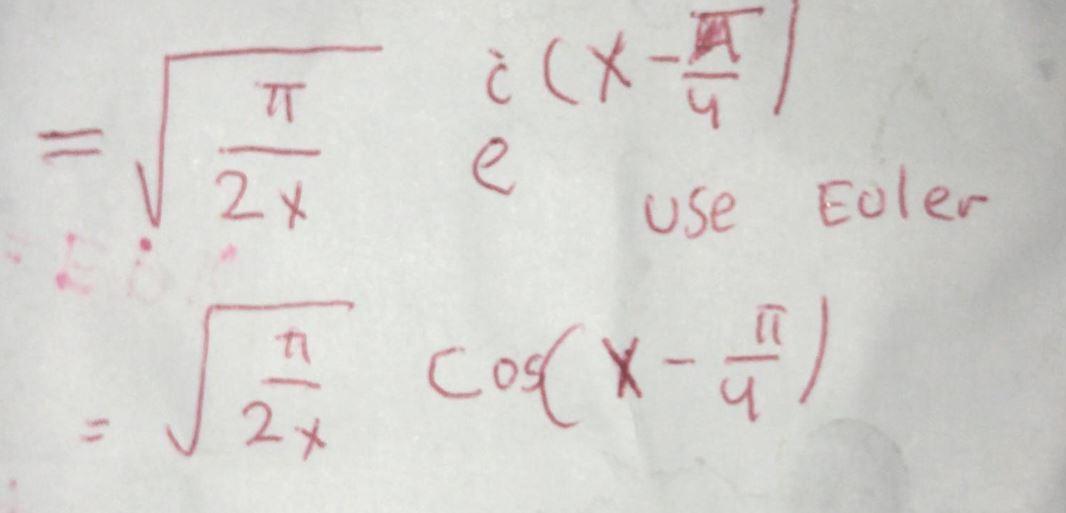 = √(π/2x) e^(i(x - π/4))
use Euler
= √(π/2x) cos(x - π/4)